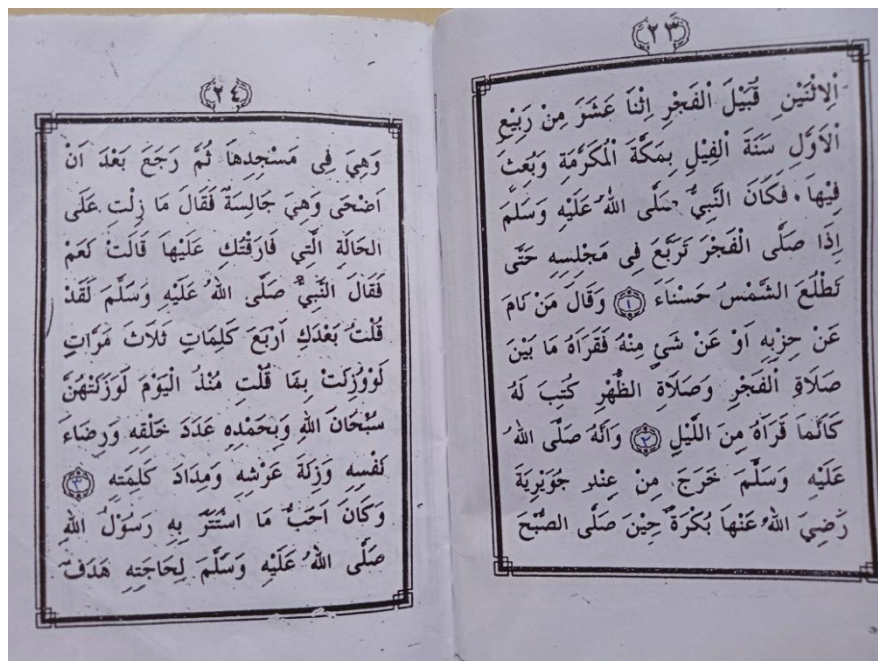 ﴿٢٣﴾
اْلاِثْنَيْنِ قُبَيْلَ اْلفَجْرِ اِثْنَا عَشَوَ مِنْ رَبِيْعِ
اْلاَوَّلِ سَنَةَ الْفِيْلِ بِمَكَّةَ الْمُكَرَّمَةِ وَبُعِثَ
فِيْهَا. فَكَانَ النَّبِيُّ صَلَّى اللهُ عَلَيْهِ وَسَلَّمَ
اِذَا صَلَّى الْفَجْرَ تَرَبَّعَ فِى مَجْلِسِهِ حَتَّى
تَطْلُعَ الشَّمْسُ حَسْنَاءَ ١ وَقَالَ مَنْ نَامَ
عَنْ حِزْبِهِ اَوْ عَنْ شَئٍ مِنْهُ فَقَرَاَهُ مَا بَيْنَ
صَلاَةِ اْلفَجْرِ وَصَلاَةِ الظُّهْرِ كُتِبَ لَهُ
كَاَنَّمَا قَرَاَهُ مِنَ اللَّيْلِ ٢ وَاَنَّهُ صَلَّى اللهُ
عَلَيْهِ وَسَلَّمَ خَرَجَ مِنْ عِنْدِ جُوَيْرِيَةَ
رَضِيَ اللهُ عَنْهَا بُكْرَةً حِيْنَ صَلَّى الصُّبْحَ
﴿٢٤﴾
وَهِيَ فِى مَسْجِدِهَا ثُمَّ رَجَعَ بَعْدَ اَنْ
اَضْحَى وَهِيَ جَالِسَةٌ فَقَالَ مَا زِلْتِ عَلَى
الحَالَةِ الَّتِي فَارَقْتُكِ عَلَيْهَا قَالَتْ نَعَمْ
فَقَالَ النَّبِيُّ صَلَّى اللهُ عَلَيْهِ وَسَلَّمَ لَقَدْ
قُلْتُ بَعْدَكِ اَرْبَعَ كَلِمَاتٍ ثَلاَثَ مَرَّاتٍ
لَوْوُزِنَتْ بِمَا قُلْتِ مُنْذُ الْيَوْمَ لَوَزَنَتْهُنَّ
سُبْحَانَ اللهِ وَبِحَمْدِهِ عَدَدَ خَلْقِهِ وَرِضَاءَ
نَفْسِهِ وَزِنَةَ عَرْشِهِ وَمِدَادَ كَلِمَتِهِ ٣
وَكَانَ اَحَبُّ مَا اسْتَتَرَ بِهِ رَسُوْلُ اللهِ
صَلَّى اللهُ عَلَيْهِ وَسَلَّمَ لِحَاجَتِهِ هَدَفٌ